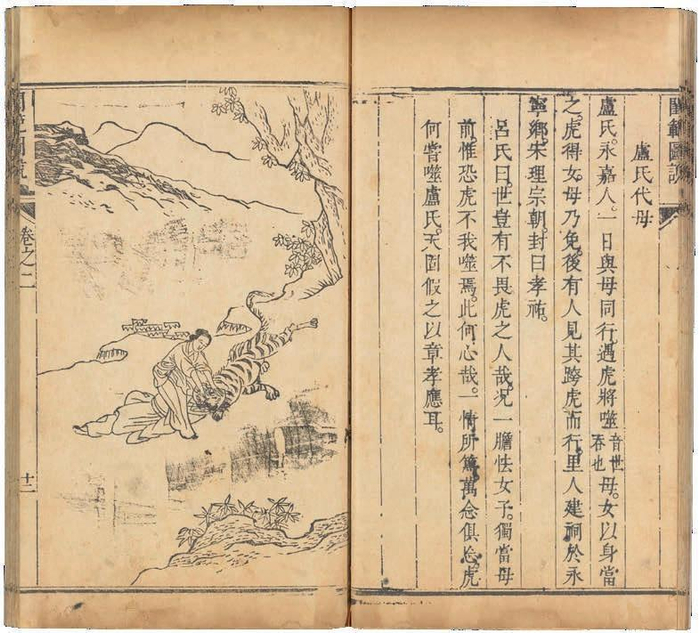 閨範圖說
盧氏代母
盧氏。永嘉人。一日與母同行。遇虎將噬音世吞也母。女以身當
之。虎得女。母乃免。後有人見其跨虎而行。里人建祠於永
寧鄉。宋理宗朝。封曰孝祐。
呂氏曰。世豈有不畏虎之人哉。况一膽怯女子。獨當母
前。惟恐虎不我噬焉。此何心哉。一情所篤。萬念俱忘。虎
何嘗噬盧氏。天固假之以章孝應耳。
卷之二